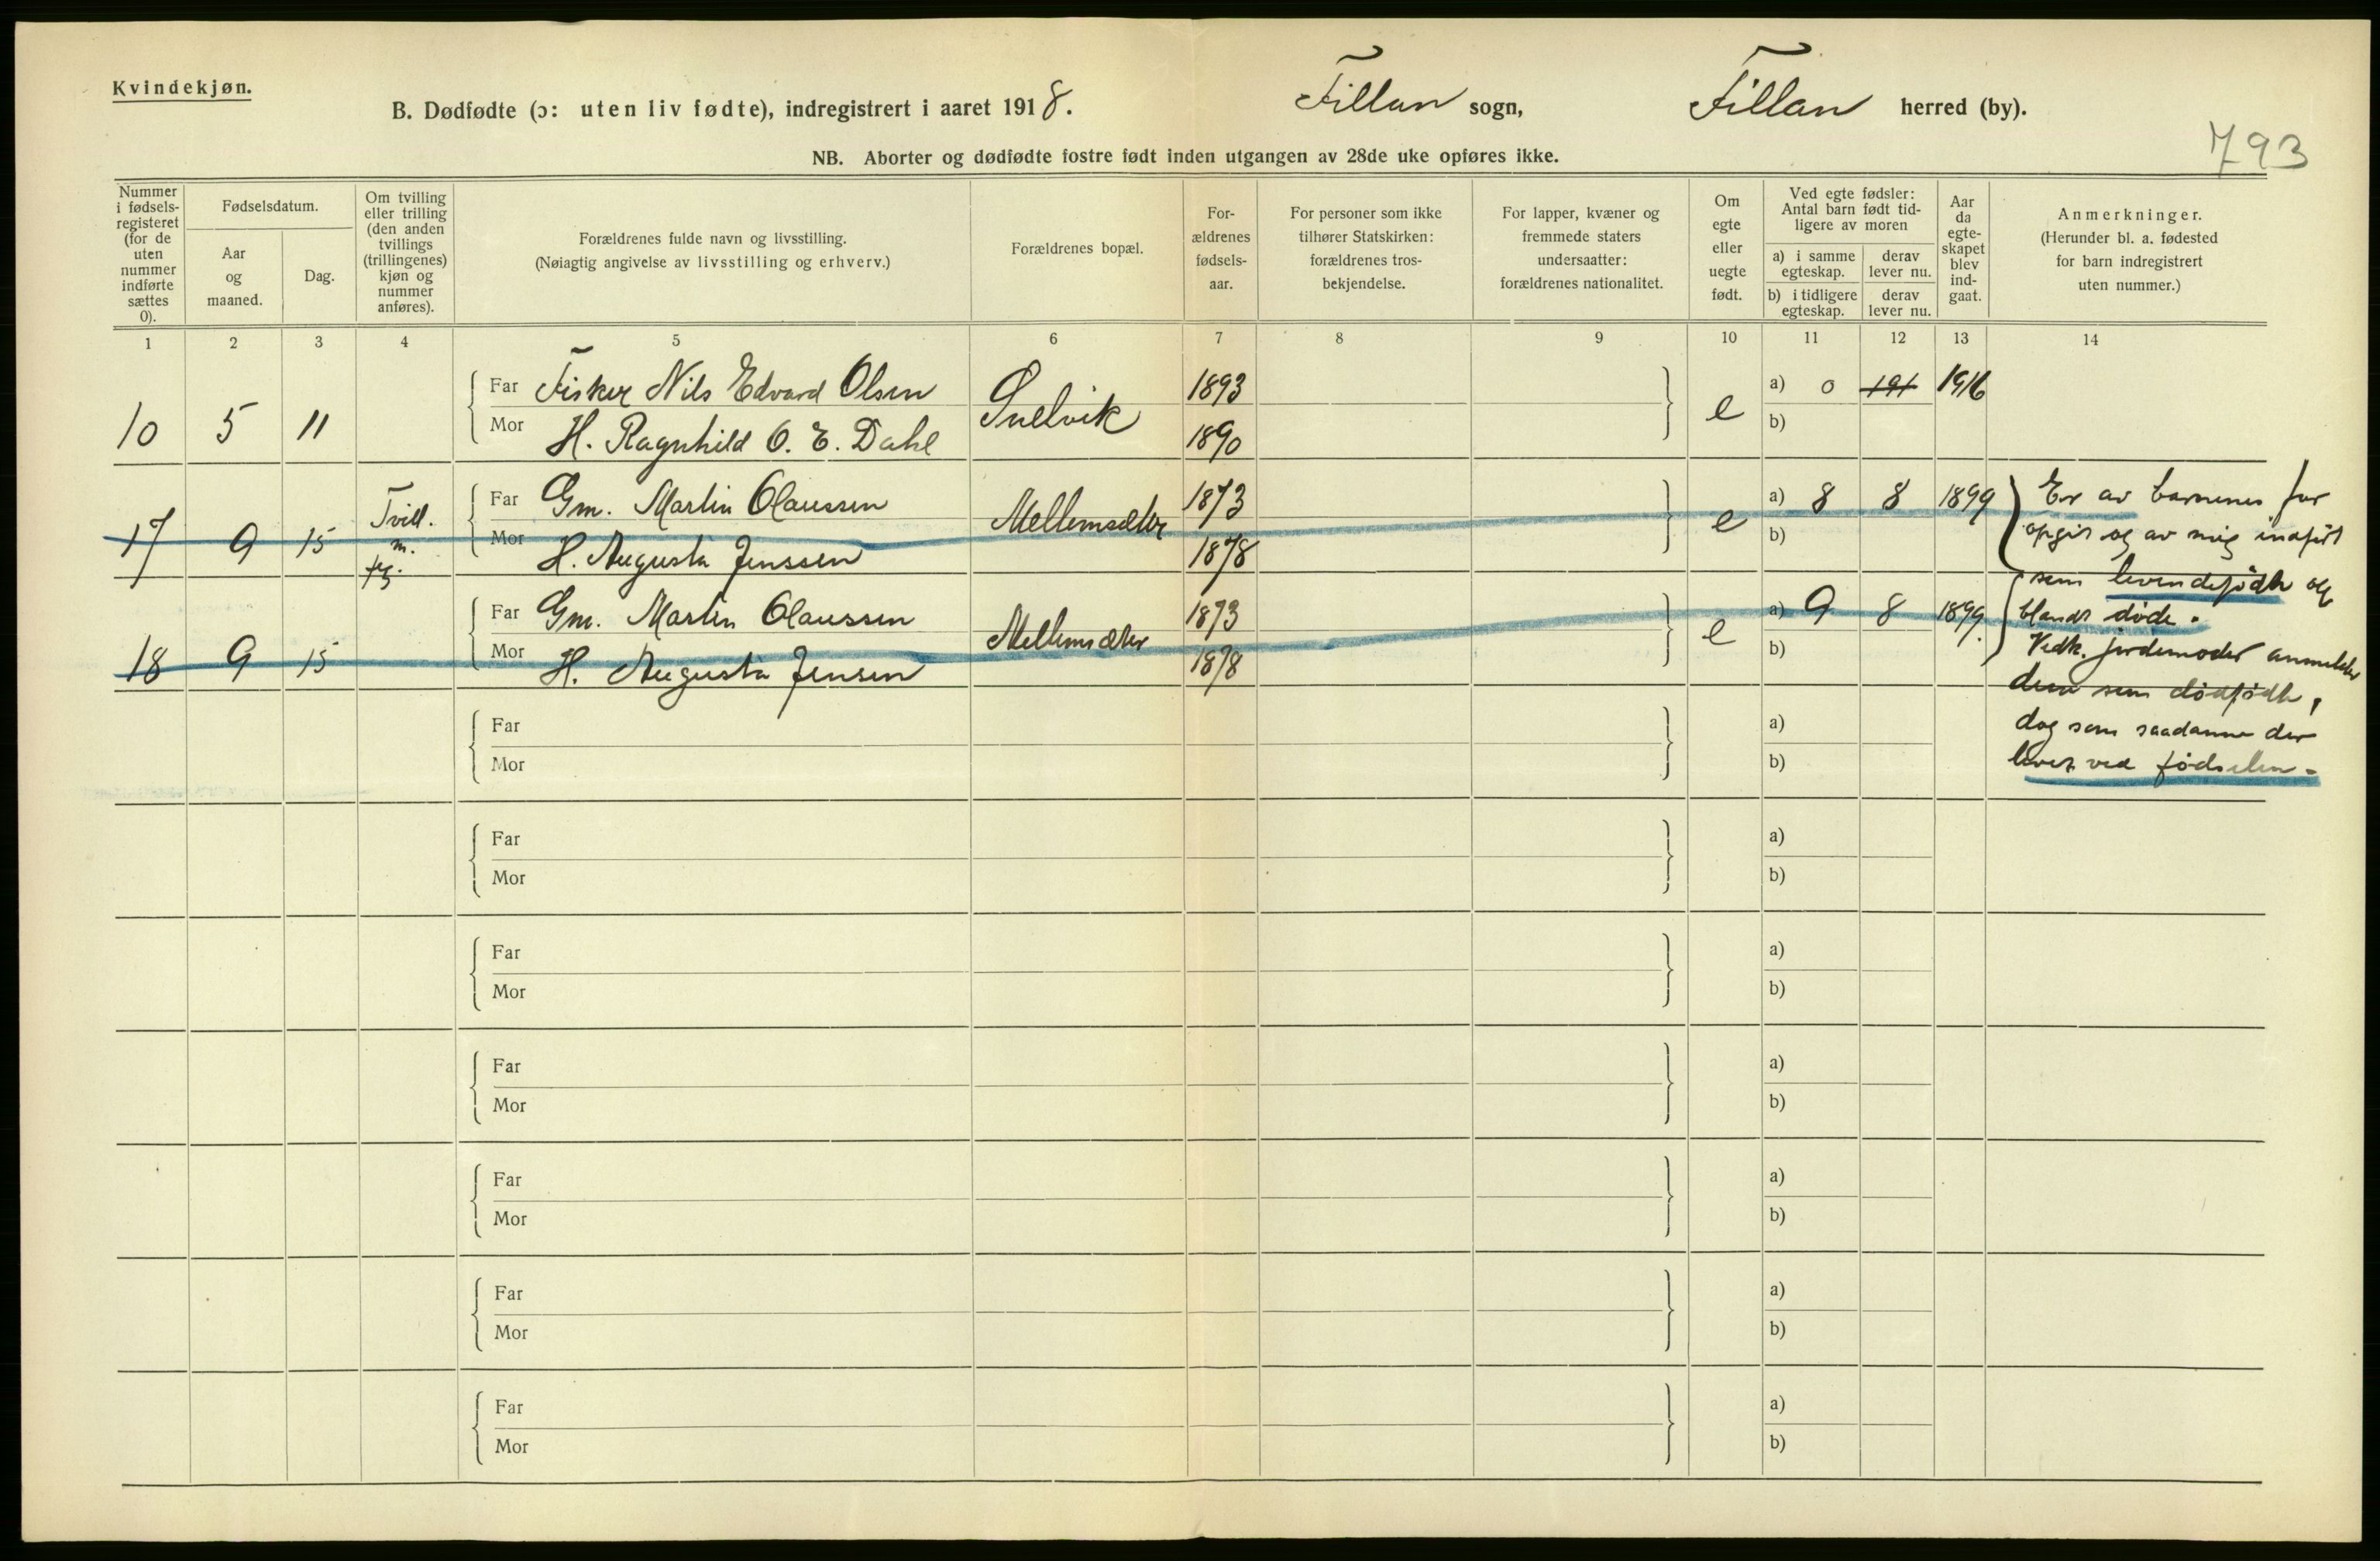 Kvindekjøn.
B. Dødfødte (ɔ: uten liv fødte), indregistrert i aaret 1918.
Fillan sogn,
Fillan herred (by).
793
NB. Aborter og dødfødte fostre født inden utgangen av 28de uke opføres ikke.
Nummer
i fødsels-
registeret
(for de
uten
nummer
indførte
sættes
0).
Fødselsdatum.
Aar
og
maaned.
Dag.
Om tvilling
eller trilling
(den anden
tvillings
(trillingenes)
kjøn og
nummer
anføres).
Forældrenes fulde navn og livsstilling.
(Nøiagtig angivelse av livsstilling og erhverv.)
Forældrenes bopæl.
For-
ældrenes
fødsels-
aar.
For personer som ikke
tilhører Statskirken:
forældrenes tros-
bekjendelse.
For lapper, kvæner og
fremmede staters
undersaatter:
forældrenes nationalitet.
Om
egte
eller
uegte
født.
Ved egte fødsler:
Antal barn født tid-
ligere av moren
a) i samme
egteskap.
derav
lever nu.
b) i tidligere
egteskap.
derav
lever nu.
Aar
da
egte-
skapet
blev
ind-
gaat.
Anmerkninger.
(Herunder bl. a. fødested
for barn indregistrert
uten nummer.)
1 2 3 4 5 6 7 8 9 10 11 12 13 14
Far Fisker Nils Edvard Olsen 1893 a) 0 191 1916
10 5 11 Snelvik e
Mor H. Ragnhild O. E. Dahl 1890 b)
Far Gm. Martin Olaussen 1873 a) 8 8 1899
17 9 15 Tvill. m. Mellemsæter e
Mor H. Augusta Jenssen 1878 b)
Far Gm. Martin Olaussen 1873 a) 9 8 1899.
18 9 15 Mellemsæter e
Mor H. Augusta Jensen 1878 b)
Er av barnenes far
opgit og av mig indført
som levendefødte og
blandt døde.
Vedk. jordemoder anmelder
dem som dødfødte,
dog som saadanne der
levet ved fødselen.
Far a)
Mor b)
Far a)
Mor b)
Far a)
Mor b)
Far a)
Mor b)
Far a)
Mor b)
Far a)
Mor b)
Far a)
Mor b)